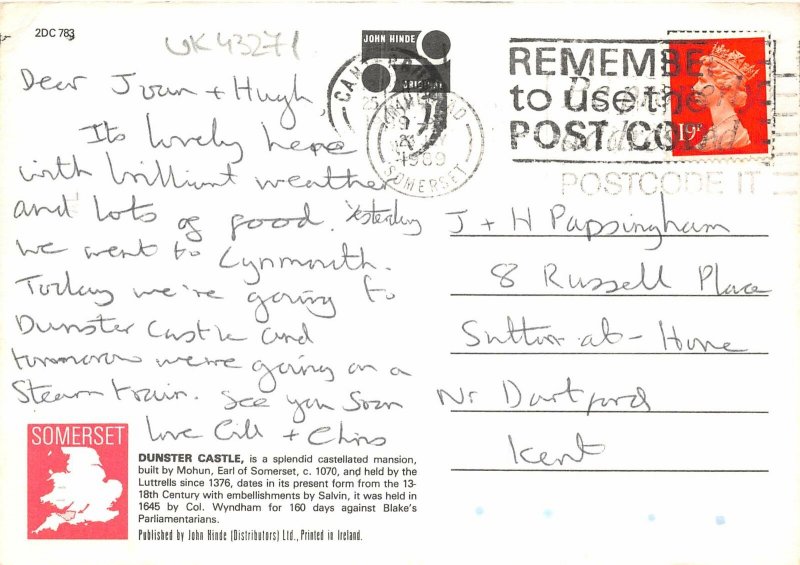 2DC 783
UK43271
JOHN HINDE
ORIGINAL
REMEMBE
to use the
POST/CO
POSTCODE IT
19
1989
SOMERSET
Dear Joan + Hugh
Its lovely here
with brilliant weather
and lots of food. Yesterday
we went to Lynmouth.
Today we're going to
Dunster Castle and
tommorow we're going on a
Steam train. See you Soon
love Gill + Chris
J + H Papsingham
8 Russell Place
Sutton-at-Hone
Nr Dartford
Kent
SOMERSET
DUNSTER CASTLE, is a splendid castellated mansion,
built by Mohun, Earl of Somerset, c. 1070, and held by the
Luttrells since 1376, dates in its present form from the 13-
18th Century with embellishments by Salvin, it was held in
1645 by Col. Wyndham for 160 days against Blake's
Parliamentarians.
Published by John Hinde (Distributors) Ltd., Printed in Ireland.